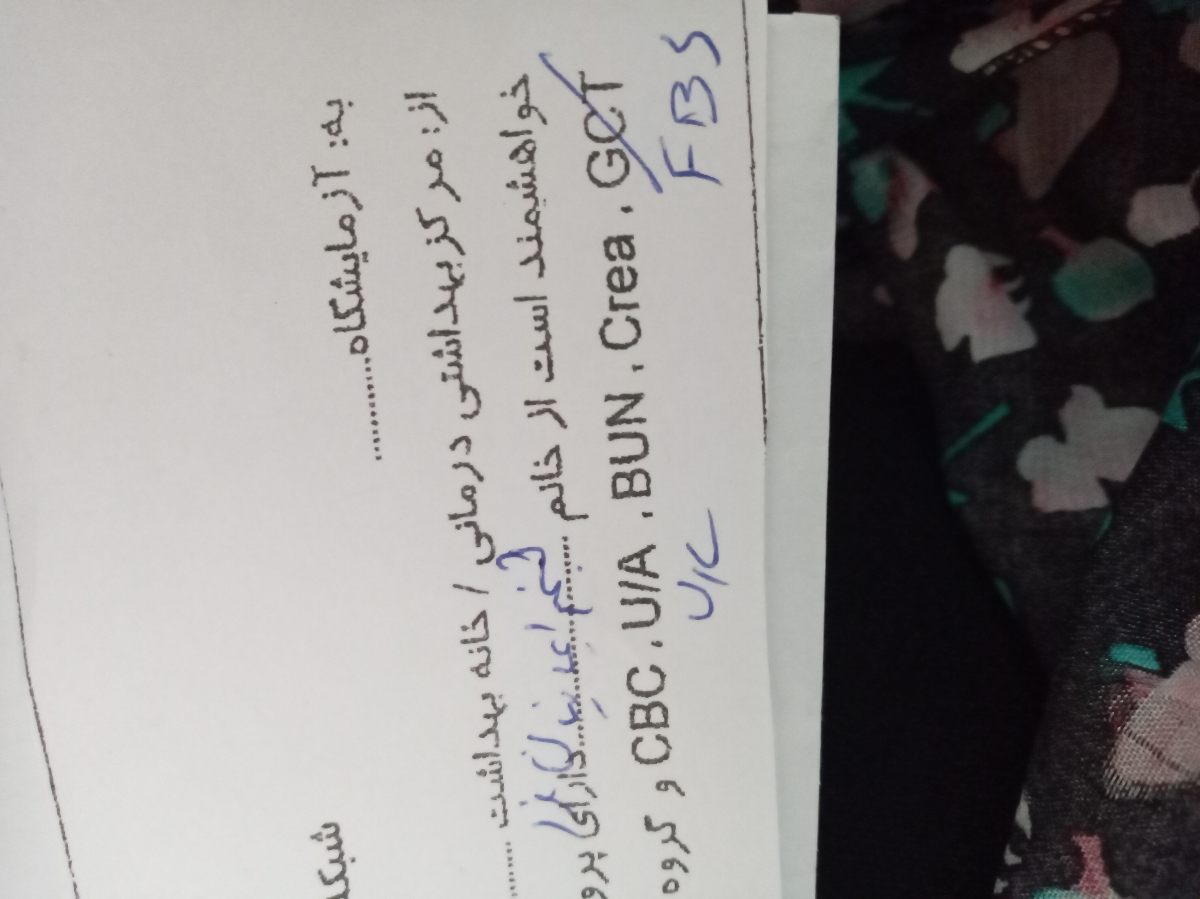 شبکه
به: آزمایشگاه............
از: مرکز بهداشتی درمانی / خانه بهداشت ............
خواهشمند است از خانم ............ دارای پرو
گروه و CBC ، U/A ، BUN ، Crea ، GCT
U/C FBS